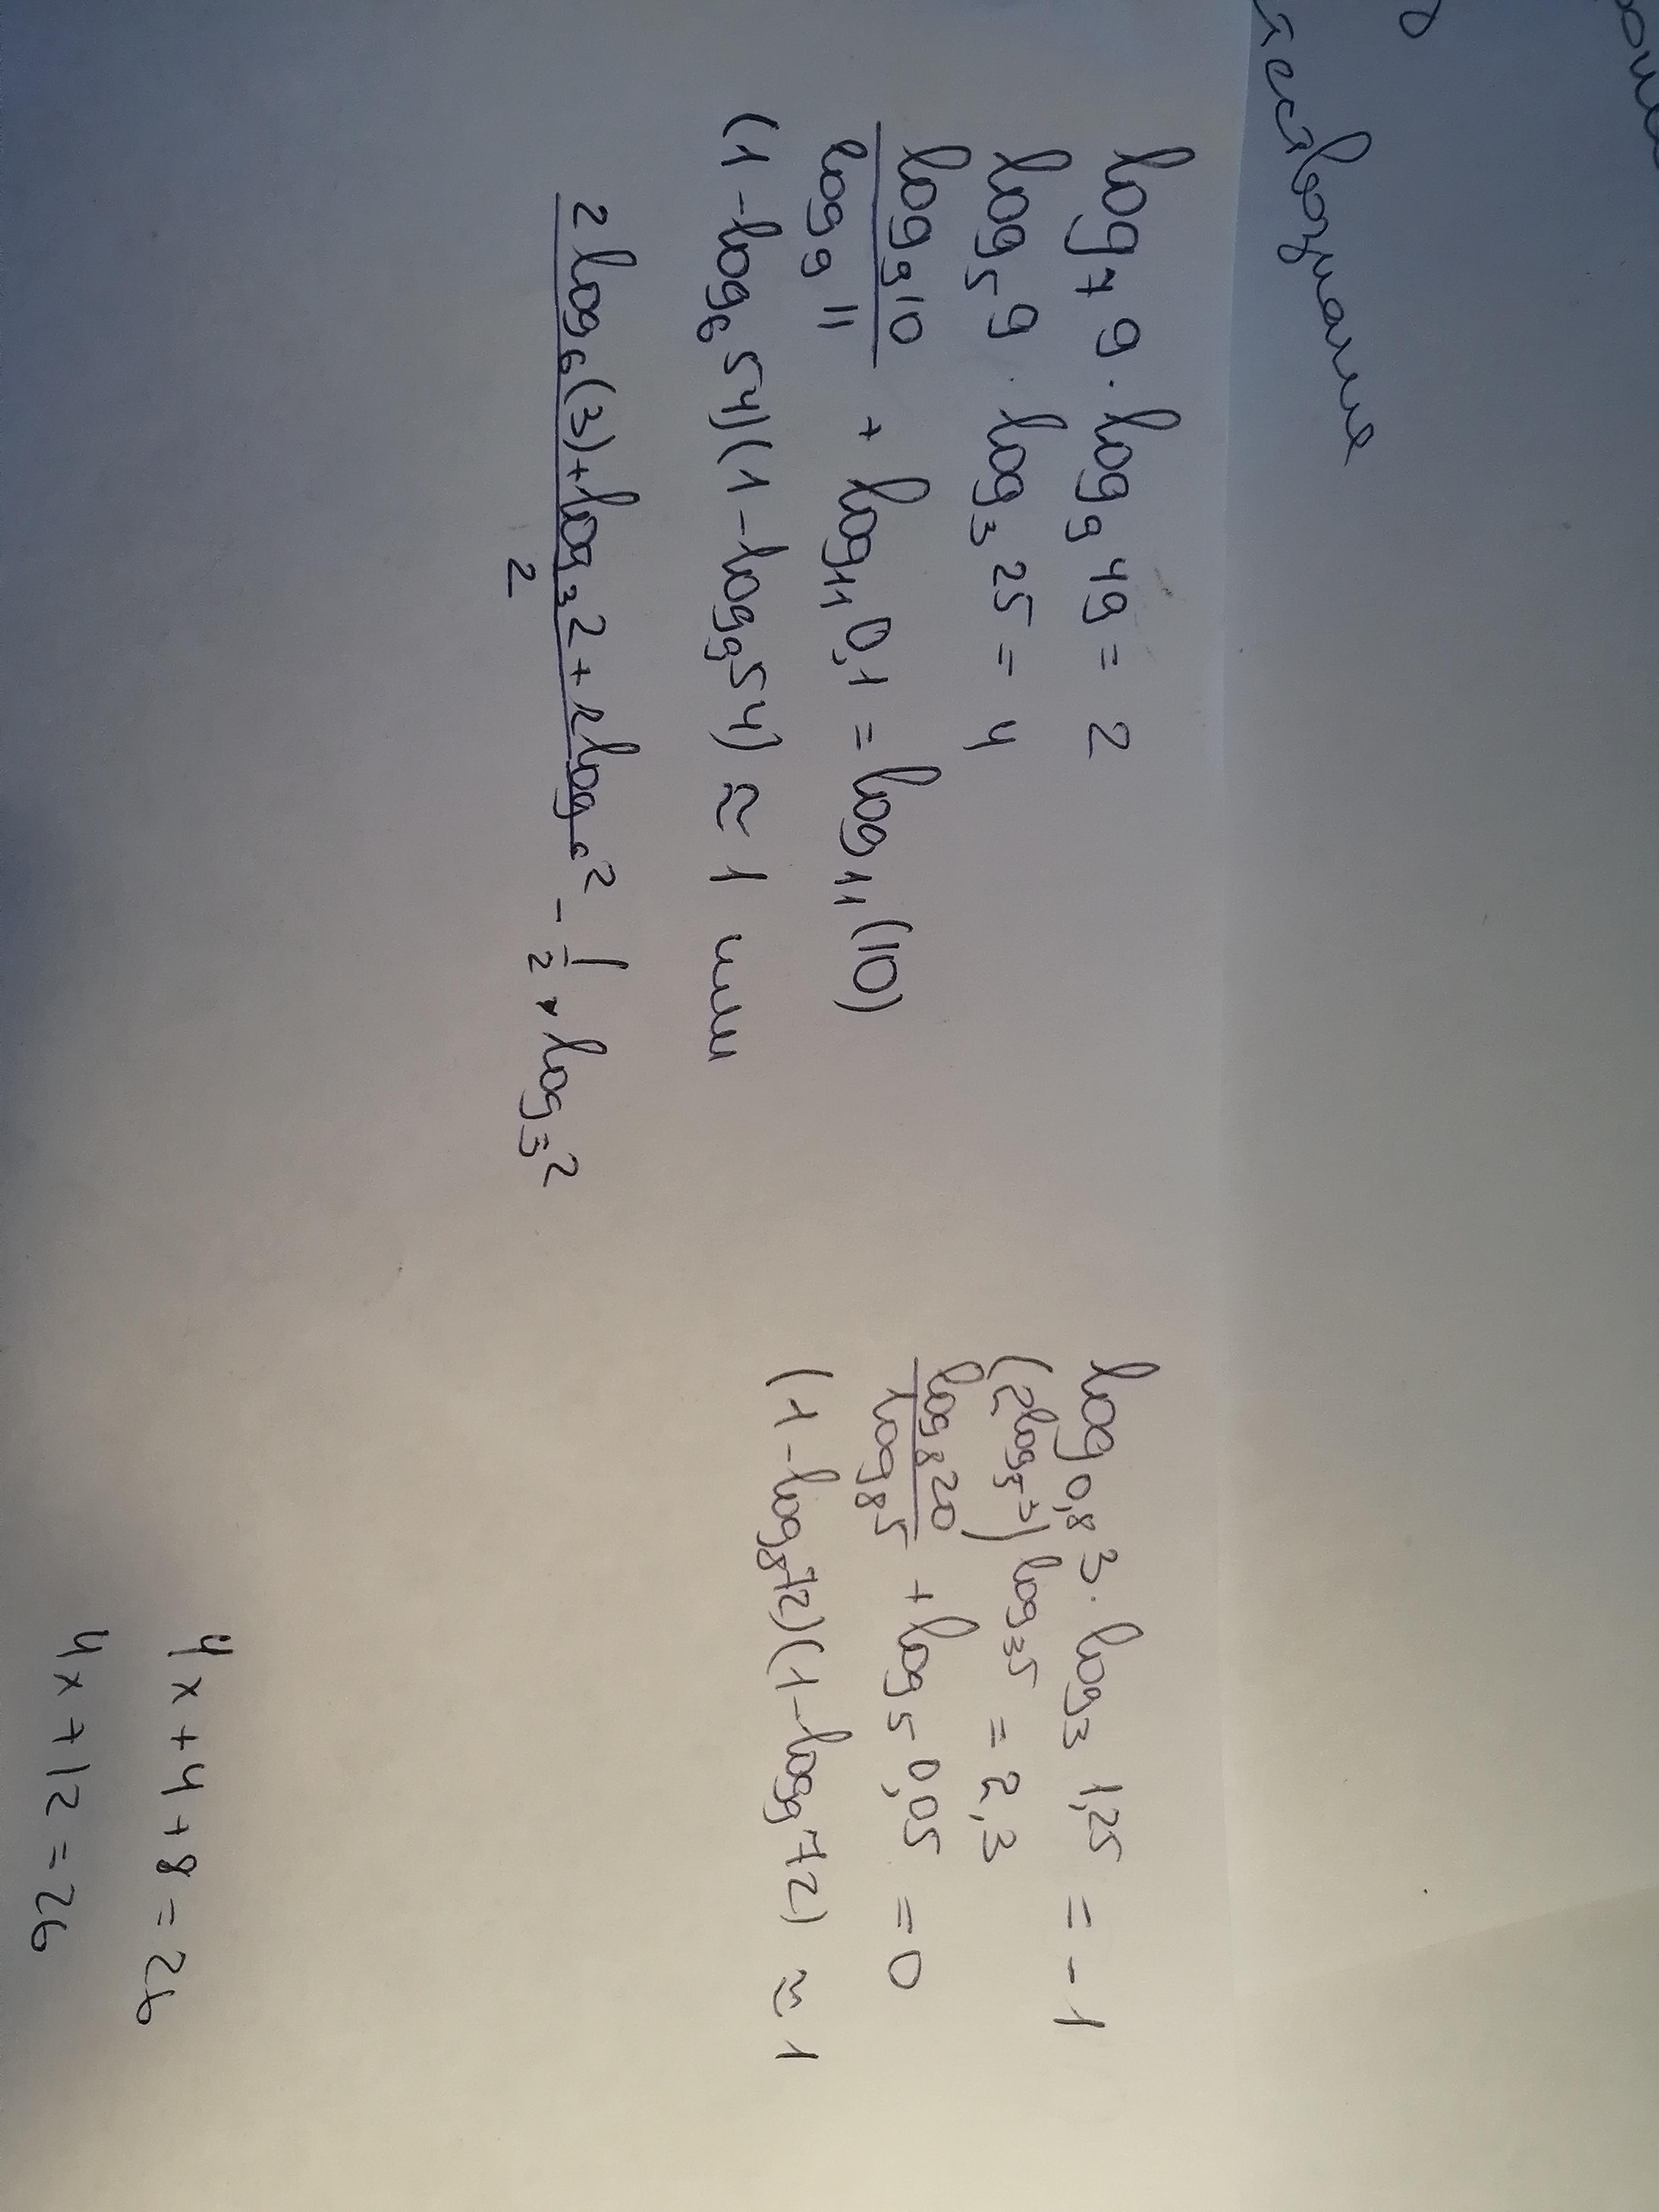 тествозиание
log₇ 9 · log₉ 49 = 2
log₅ 9 · log₃ 25 = 4
log₉ 10 / log₉ 11 + log₁₁ 0,1 = log₁₁ (10)
(1 - log₆ 54)(1 - log₉ 54) ≈ 1 или
(2 log₆ (3) + log₃ 2 + 2 log₆ 2) / 2 - 1/2 · log₃ 2
log₀,₈ 3 · log₃ 1,25 = -1
(2 log₅ 3) log₃ 5 = 2,3
log₈ 20 / log₈ 5 + log₅ 0,05 = 0
(1 - log₈ 72)(1 - log₉ 72) ≈ 1
4x + 4 + 8 = 26
4x + 12 = 26